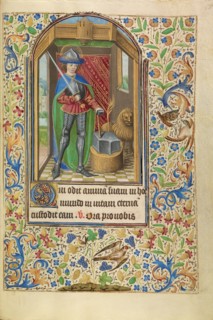 Qui odit animam suam in hoc
mundo in vitam eternā
custodit eam. ℣. Ora pro nobis